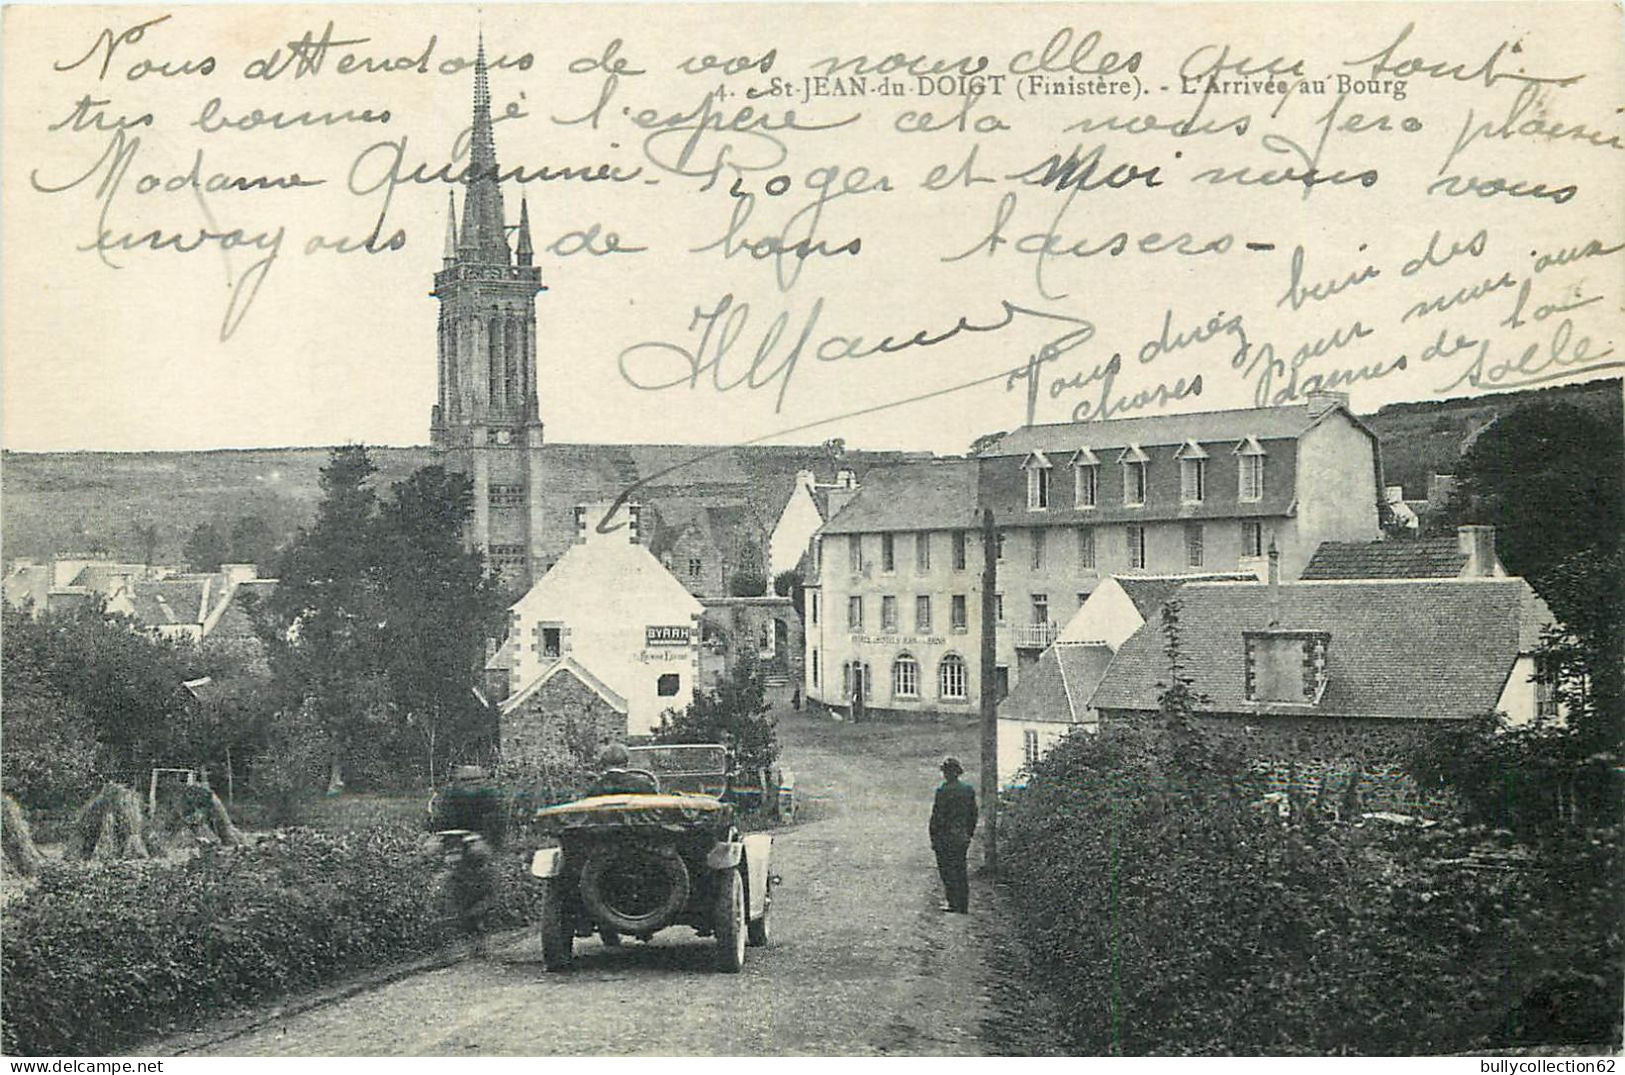 Nous attendons de vos nouvelles qui sont
4. - St-JEAN-du-DOIGT (Finistère). - L'Arrivée au Bourg
très bonnes je l'espère cela nous fera plaisir
Madame Roger et Moi nous vous
envoyons de bons baisers -
Vous direz bien des
choses pour moi aux
dames de la
salle
BYRRH
bullycollection62